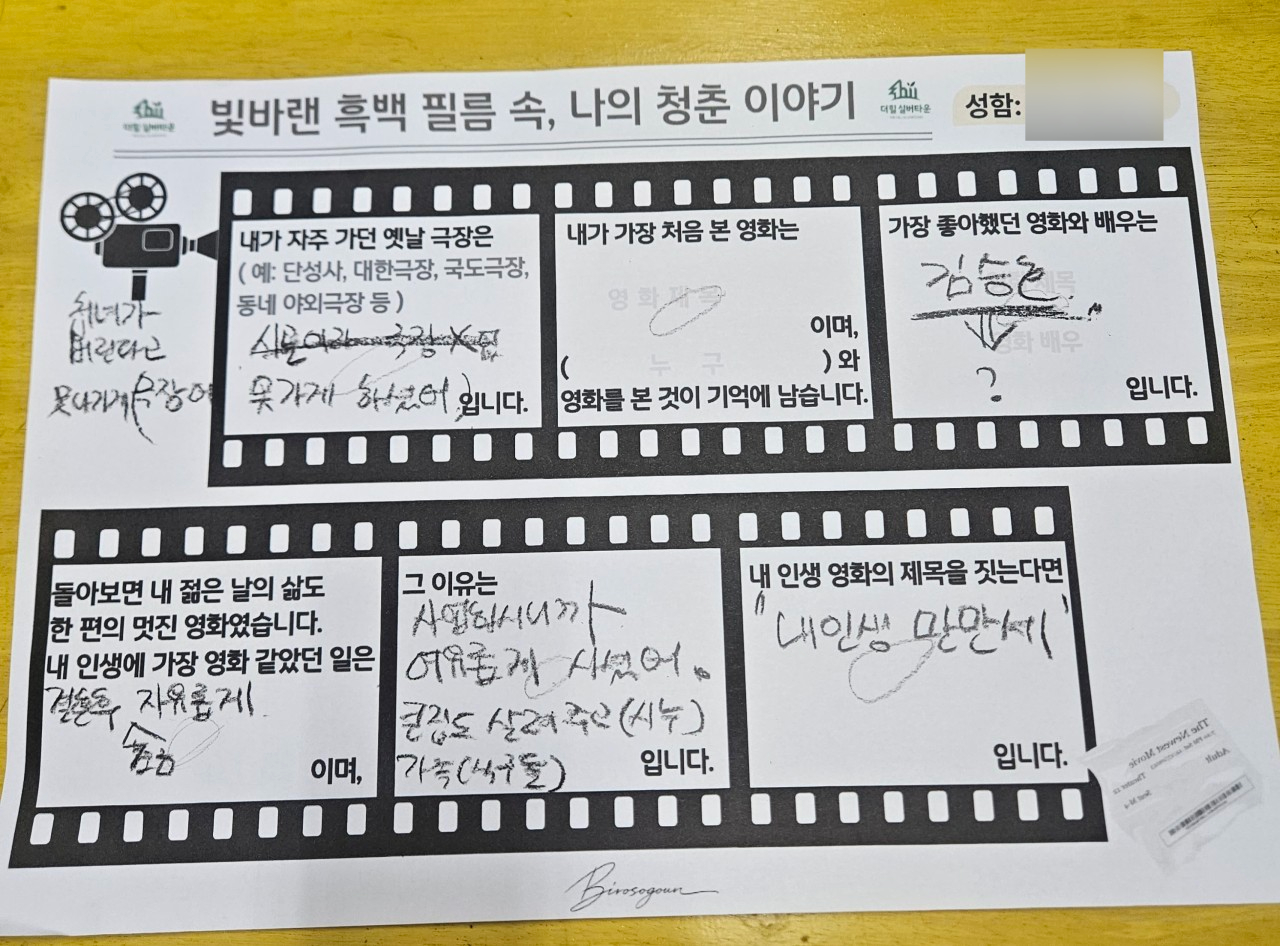 더힐 실버타운
빛바랜 흑백 필름 속, 나의 청춘 이야기
더힐 실버타운
성함:
내가 자주 가던 옛날 극장은
( 예: 단성사, 대한극장, 국도극장,
동네 야외극장 등 )
극장 X
못가게 하셨어
입니다.
처녀가
버린다고
못나가게(극장에
내가 가장 처음 본 영화는
영화제목
이며,
( 누구 ) 와
영화를 본 것이 기억에 남습니다.
가장 좋아했던 영화와 배우는
제목
김승호
영화 배우
?
입니다.
돌아보면 내 젊은 날의 삶도
한 편의 멋진 영화였습니다.
내 인생에 가장 영화 같았던 일은
결혼후 자유롭게
이며,
그 이유는
사업하시니까
여유롭게 사셨어.
큰집도 살려주고(시누)
가족(식구들)
입니다.
내 인생 영화의 제목을 짓는다면
"내인생 만만세"
입니다.
The Newest Movie
Adult
Theater
Birosogoun